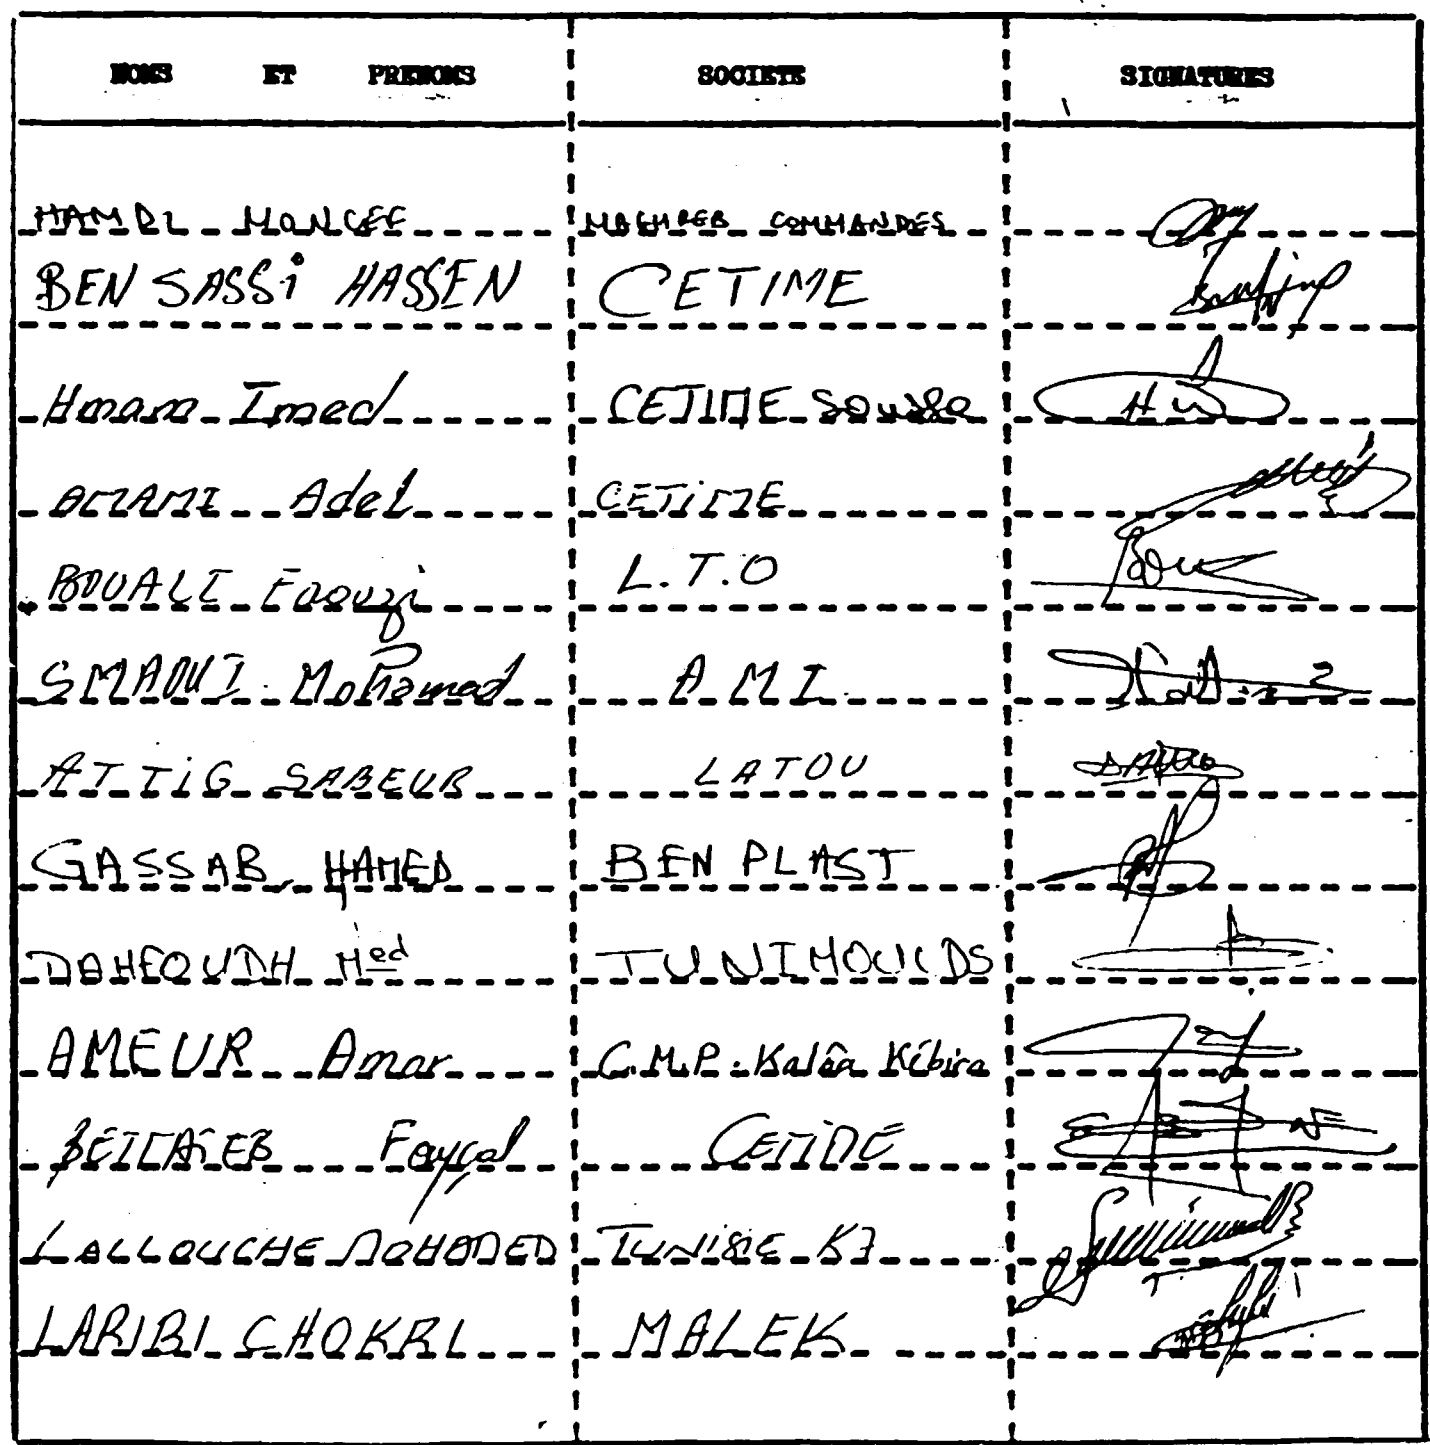 NOMS ET PRENOMS SOCIETE SIGNATURES
HAMDI MONCEF MAGHREB COMMANDES
BEN SASSi HASSEN CETIME
Hmam Imed CETIME Sousse
AMAMI Adel CETiME
BOUALI Faouzi L.T.O
SMAOUI Mohamed A.M.I.
ATTiG SABEUR LATOU
GASSAB HAMED BEN PLAST
DAHEOUDH Med TUNIMOULDS
AMEUR Amar C.M.P. Kalâa Kébira
Fayçal CETIME
LALLOUCHE MOHAMED TUNiSIE
LARIBI CHOKRI MALEK